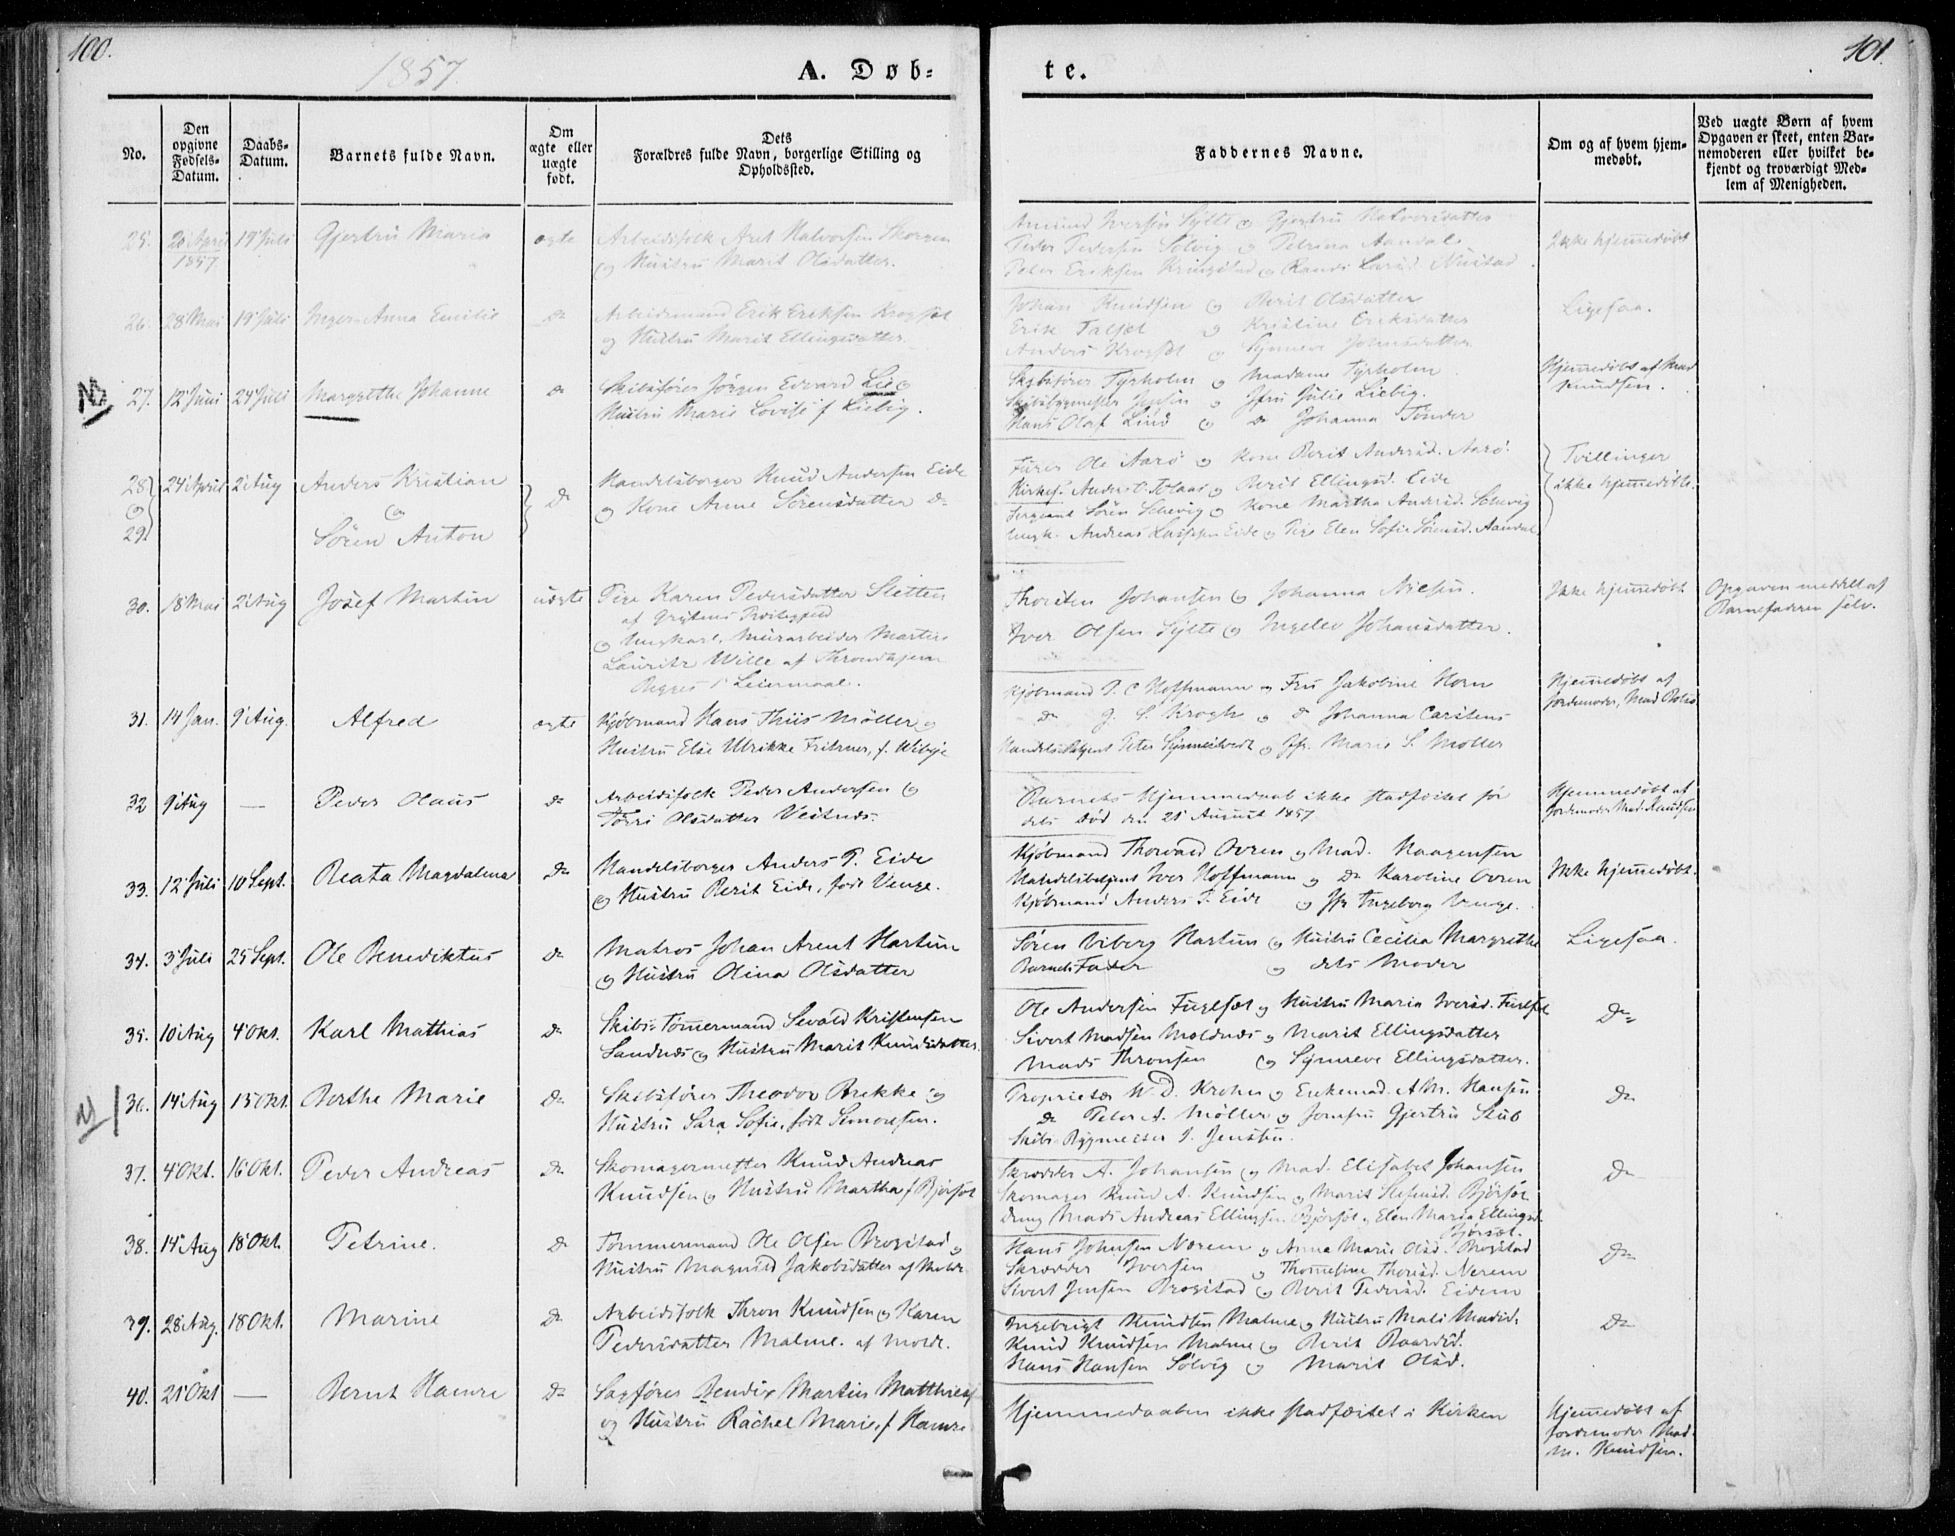 100.
101.
1857.
A. Døb-
te.
No.
Den opgivne Fødsels-Datum.
Daabs-Datum.
Barnets fulde Navn.
Om ægte eller uægte født.
Dets Forældres fulde Navn, borgerlige Stilling og Opholdssted.
Faddernes Navne.
Om og af hvem hjem-medøbt.
Ved uægte Børn af hvem Opgaven er skeet, enten Bar-nemoderen eller hvilket be-kjendt og troværdigt Med-lem af Menigheden.
25. 20 April 1857 19 Juli Gjertru Maria ægte Arbeidsfolk Aret Halvorsen Skorgen
og Hustru Marit Olsdatter.
Amund Iversen Sylte og Gjertru Halvorsdatter
Peder Pedersen Solvig og Petrina Aandal
Peter Eriksen Kringstad og Randi Nustad
Ikke hjemmedøbt
26. 28 Mai 19 Juli Inger Anna Emilie Do Arbeidsmand Erik Eriksen Krogsæt
og Hustru Marit Ellingsdatter.
Johan Knudsen og Berit Olsdatter
Erik Talset og Kristine Eriksdatter
Anders Krogset og Synneve Johnsdatter
Ligesaa.
NB
27. 12 Juni 24 Juli Margrethe Johanne do Skibsfører Jørgen Edvard Lie og
Hustru Marie Lovise f. Liebig.
Skibsfører Tyrholm og Madame Tyrholm
Skibsbygmester Jensen og Jfru Julie Liebig.
Hans Olaf Lind og Do Johanna Tønder
Hjemmedøbt af Mad Knudsen.
28 og 29. 24 April 2 Aug Anders Kristian
og
Søren Anton
Do Handelsborger Knud Andersen Eide
og Kone Anne Sørensdatter Do
Furer Ole Aarø og Kone Berit Andersd. Aarø.
Kirkes. Anders Tolaas og Berit Ellingsd. Eide
Sergeant Søren Schevig og Kone Martha Andersd. Schevig
Ungk. Andreas Eide og Pige Elen Sofie Sørensd. Aandal
Tvillinger
ikke hjemmedøbte.
30. 18 Mai 2 Aug Josef Martin uægte Pige Karen Pedersdatter Sletten
af Grytens Præstegjeld
og Ungkarl, Murarbeider Martin
Lauritz Wille af Throndhjem
Begges 1 Leiermaal.
Thorsten Johansen og Johanna Nielsen.
Iver Olsen Sylte og Ingelev Johansdatter.
Ikke hjemmedøbt
Opgaven meddelt af
Barnefaderen selv.
31. 14 Jan. 9 Aug. Alfred ægte Kjøbmand Hans Thiis Møller og
Hustru Else Ulrikke Fritzner, f. Wibye
Kjøbmand P. C Hoffmann og Fru Jakobine Horn
do J. S. Krogh og do Johanna Carstens
Handelsbetjent Peter Synnestvedt og Jfr. Marie S. Møller
Hjemmedøbt af
Jordemoder, Mad
32 9 Aug — Peder Olaus do Arbeidsfolk Peder Andersen og
Torri Olsdatter Vestnes.
Barnets Hjemmedaab ikke stadfæstet før
dets Død den 21 August 1857
Hjemmedøbt af
Jordemoder Mad. Knudsen
33. 12 Juli 10 Sept. Beata Magdalena Do Handelsborger Anders P. Eide
og Hustru Berit Eide, født Venge.
Kjøbmand Thorvald Owren og Mad. Haagensen
Handelsbetjent Iver Hoffmann og Do Karoline Owren
Kjøbmand Anders P. Eide og Jfr Ingeborg Venge.
Ikke hjemmedøbt.
34. 3 Juli 25 Sept. Ole Benediktus do Matros Johan Arent Hartum
og Hustru Olina Olsdatter
Søren Viberg Hartum og Hustru Cecilia Margrethe
Barnets Fader og dets Moder
Ligesaa.
35. 10 Aug 4 Okt. Karl Mathias do Skibs-Tømmermand Sevald Kristensen
Sandnes og Hustru Marit Knudsdatter.
Ole Andersen Fuglset og Hustru Maria Iversd. Fuglset
Sivert Madsen Moldnes og Marit Ellingsdatter
Mads Thronsen og Synneve Ellingsdatter.
Do
36. 14 Aug 15 Okt. Berthe Marie Do Skibsfører Theodor Brekke og
Hustru Sara Sofie, født Simonsen.
Proprietær W. D. Krohn og Enkemad. A M. Hansen
do Peter A. Møller og Jomfru Gjertru Stub
Skibs-Bygmester J. Jensen.
Do
37. 4 Okt. 16 Okt. Peder Andreas Do Skomagermester Knud Andreas
Knudsen og Hustru Martha f. Bjørset
Skrædder A. Johansen og Mad. Elisabet Johansen
Skomager Knud A. Knudsen og Marit Bjørset
Dreng Mads Andreas Ellingsen Bjørset og Elen Maria Ellingsd.
Bjørset.
Do
38. 14 Aug 18 Okt. Petrine. Do Tømmermand Ole Olsen Brogstad og
Hustru Magnild Jakobsdatter af Molde
Hans Johnsen Nerem og Anna Marie Olsd. Brogstad
Skrædder Iversen og Thomasine Thorsd. Nerem
Sivert Jensen Brogstad og Berit Pedersd. Eidem
Do
39. 28 Aug. 18 Okt. Marine Do Arbeidsfolk Thron Knudsen og Karen
Pedersdatter Malme. af Molde.
Ingebrigt Knudsen Malme og Hustru Mali Madsd.
Knud Knudsen Malme og Berit Baardsd.
Hans Hansen Sølvig og Marit Olsd.
Do
40. 21 Okt — Bernt Hamre Do Sagfører Bendix Martin Matthiesen
og Hustru Rachel Marie, f. Hamre
Hjemmedaaben ikke stadfæstet i Kirken
Hjemmedøbt af
Jordemoder Mad.
M. Knudsen.